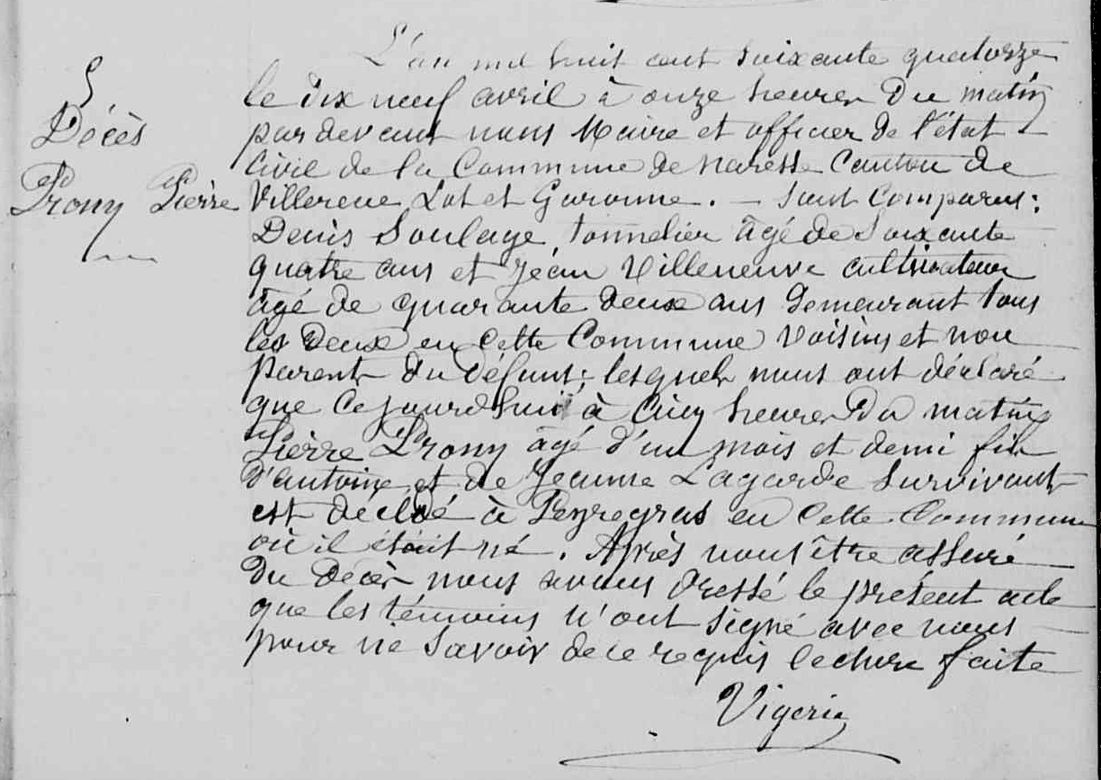 5
Décès
Prony Pierre
L'an mil huit cent soixante quatorze
le dix neuf avril à onze heures du matin
par devant nous Maire et officier de l'état
Civil de la Commune de naresse Canton de
Villereue Lot et Garonne. — sont Comparus:
Denis Soulage, tonnelier âgé de soixante
quatre ans et Jéan Villeneuve cultivateur
âgé de quarante deux ans demeurant tous
les deux en cette Commune voisins et non
parents du défunt; lesquels nous ont déclaré
que Cejourdhui à cinq heures Du matin
Pierre Prony âgé d'un mois et demi fils
d'antoine et de Jeanne Lagarde survivants
est décédé à Peyregras en cette Commune
où il était né. Après nous être assuré
Du décès nous avons dressé le présent acte
que les témoins n'ont signé avec nous
pour ne savoir de ce requis lecture faite
Vigerie